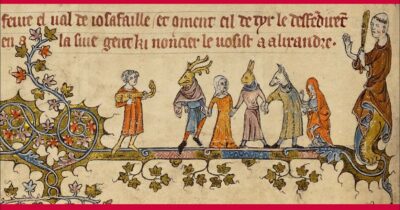 el ual de iosafaille et oment cil de tyr le desfēdirent
en a la siue gent ki noncier le uosist a alixandre.